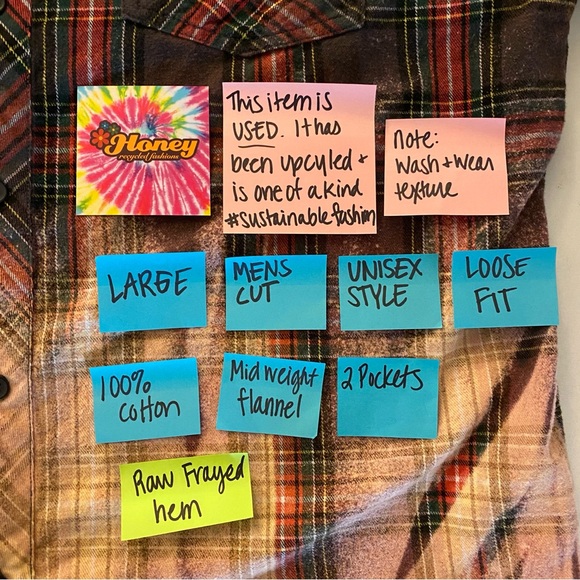 Honey
recycled fashions
This item is
USED. It has
been upcyled +
is one of a kind
#sustainable fashion
note:
Wash + Wear
texture
LARGE
MENS
CUT
UNISEX
STYLE
LOOSE
FIT
100%
cotton
Mid weight
flannel
2 Pockets
Raw Frayed
hem